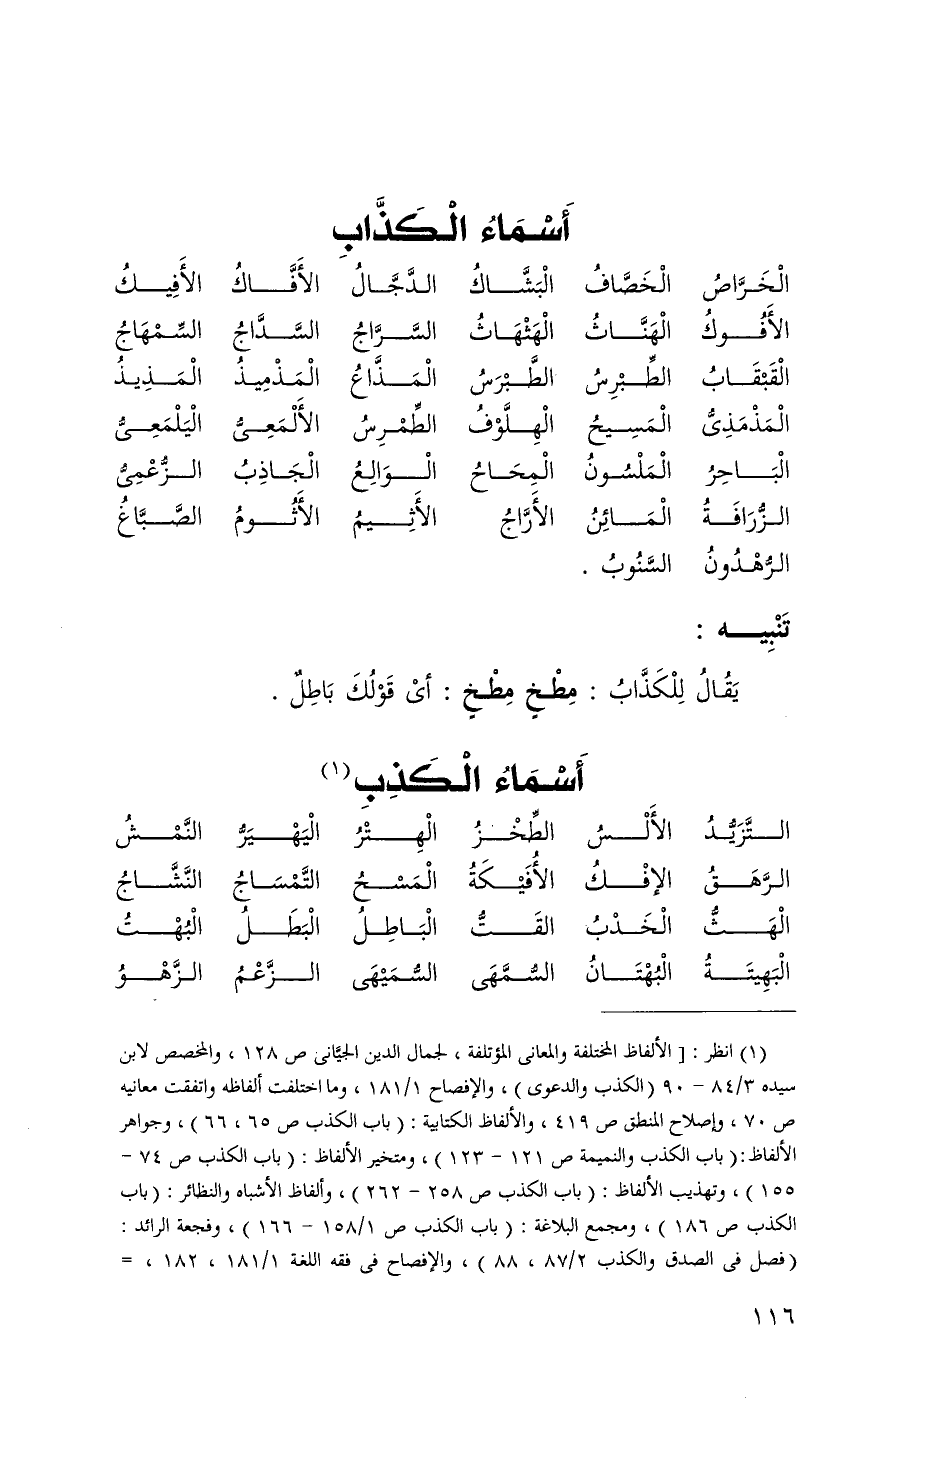 أَسْمَاءُ الْكَذَّابِ
الْخَرَّاصُ الْخَصَّافُ الْبَشَّاكُ الدَّجَّالُ الأَفَّاكُ الأَفِيكُ
الأَفُوكُ الْهَتَّاتُ الْهَثْهَاثُ السَّرَّاجُ السَّدَّاجُ السِّمْهَاجُ
الْقَبْقَابُ الطِّبْرِسُ الطَّبْرَسُ الْمَذَّاعُ الْمَذْمِيذُ الْمَذِيذُ
الْمَذْمَذِىُّ الْمَسِيحُ الْهِلَّوْفُ الطِّمْرِسُ الأَلْمَعِىُّ الْيَلْمَعِىُّ
الْبَاجِرُ الْمَلْسُونُ الْمِحَاحُ الْوَالِغُ الْجَاذِبُ الزُّعْمِىُّ
الزُّرَافَةُ الْمَائِنُ الأَرَّاجُ الأَثِيمُ الأَثُومُ الصَّبَّاغُ
الرُّهْدُونُ السَّنُوبُ .
تَنْبِيه :
يَقُالُ لِلْكَذَّابُ : مِطْخٍ مِطْخٍ : أىْ قَوْلُكَ بَاطِلٌ .
أَسْمَاءُ الْكَذِبِ (١)
التَّزَيُّدُ الأَلْسُ الطِّخْزُ الْهِتْرُ الْيَهْيَرُّ النَّمْشُ
الرَّهَقُ الإِفْكُ الأُفَيْكَةُ الْمَسْحُ التَّمْسَاحُ النَّشَّاجُ
الْهَتُّ الْخَدْبُ القَتُّ الْبَاطِلُ الْبَطَلُ الْبُهْتُ
الْبَهِيتَةُ الْبُهْتَانُ السُّمَّهَى السُّمَيْهَى الزَّعْمُ الزَّهْوُ
(١) انظر : [ الألفاظ المختلفة والمعانى المؤتلفة ، لجمال الدين الجيَّانى ص ١٢٨ ، والمخصص لابن
سيده ٨٤/٣ – ٩٠ (الكذب والدعوى) ، والإفصاح ١٨١/١ ، وما اختلفت ألفاظه واتفقت معانيه
ص ٧٠ ، وإصلاح المنطق ص ٤١٩ ، والألفاظ الكتابية : ( باب الكذب ص ٦٥ ، ٦٦ ) ، وجواهر
الألفاظ :( باب الكذب والنميمة ص ١٢١ – ١٢٣ ) ، ومتخير الألفاظ : ( باب الكذب ص ٧٤ –
١٥٥ ) ، وتهذيب الألفاظ : ( باب الكذب ص ٢٥٨ – ٢٦٢ ) ، وألفاظ الأشباه والنظائر : ( باب
الكذب ص ١٨٦ ) ، ومجمع البلاغة : ( باب الكذب ص ١٥٨/١ – ١٦٦ ) ، وفجعة الرائد :
( فصل فى الصدق والكذب ٨٧/٢ ، ٨٨ ) ، والإفصاح فى فقه اللغة ١٨١/١ ، ١٨٢ ، =
١١٦